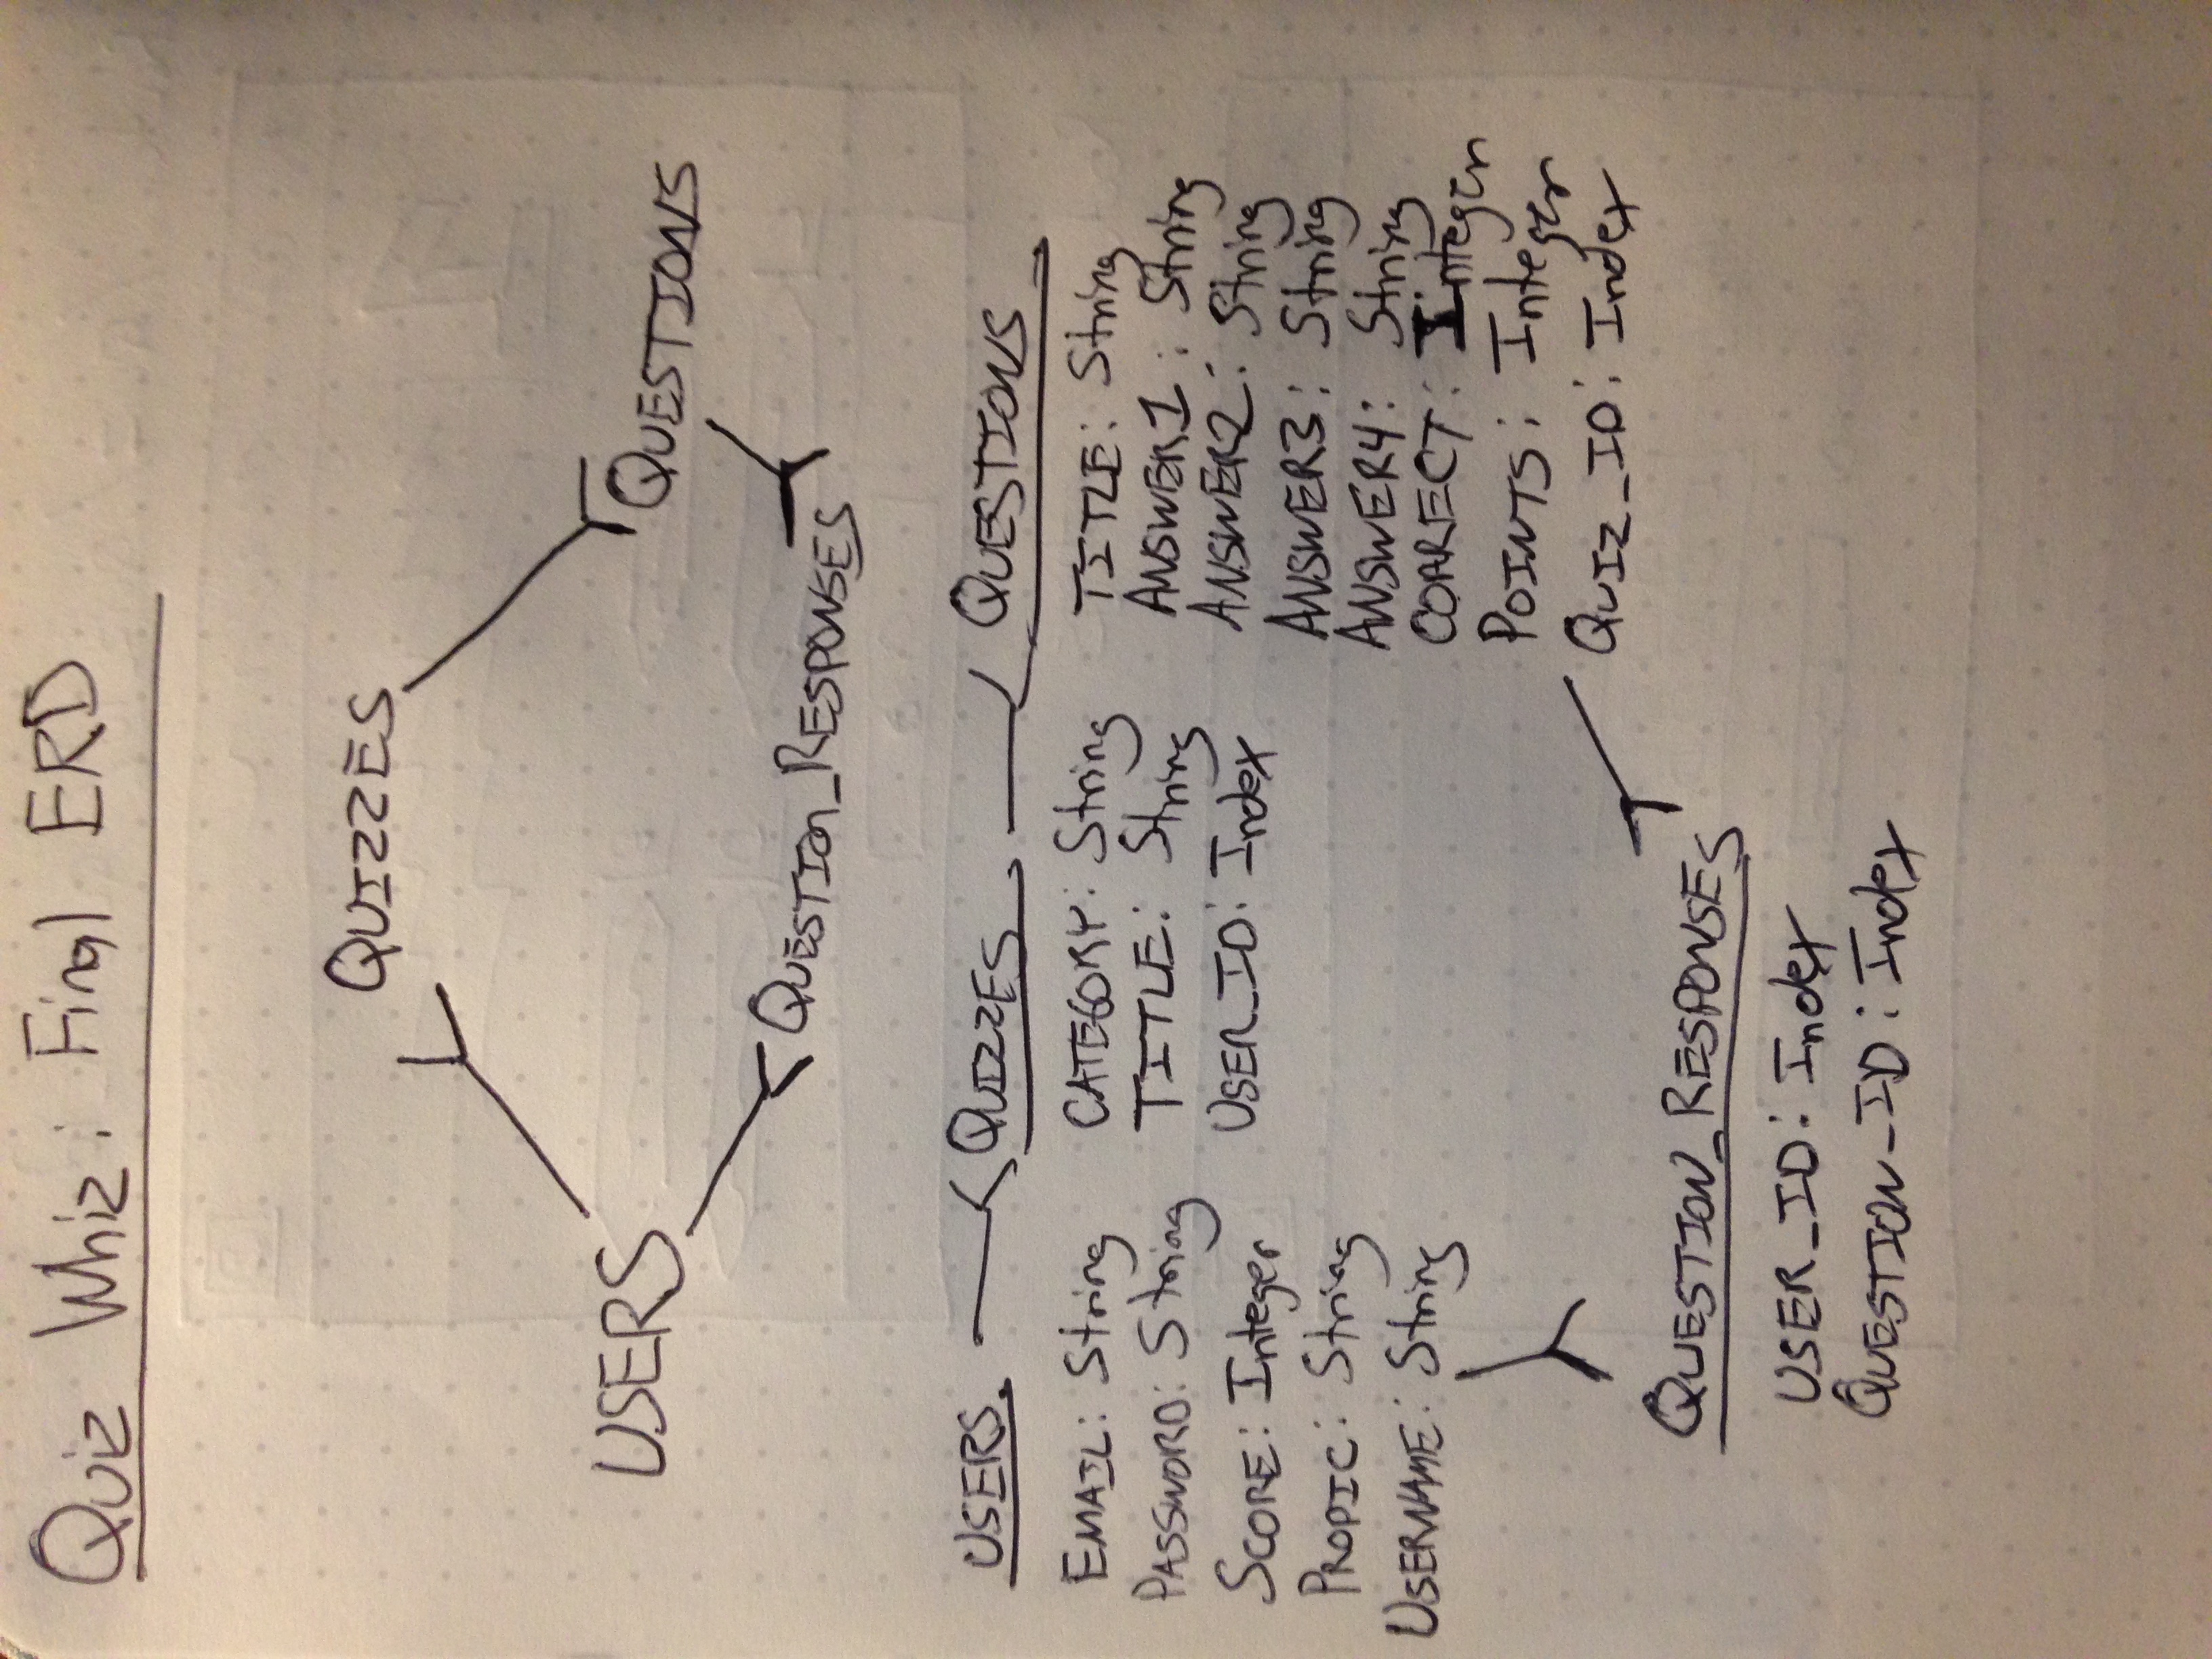 Quiz Whiz: Final ERD
QUIZZES
USERS
QUESTIONS
QUESTION_RESPONSES
USERS
QUIZZES
QUESTIONS
EMAIL: String
PASSWORD: String
SCORE: Integer
PROPIC: String
USERNAME: String
CATEGORY: String
TITLE: String
USER_ID: Index
TITLE: String
ANSWER1: String
ANSWER2: String
ANSWER3: String
ANSWER4: String
CORRECT: Integer
POINTS: Integer
QUIZ_ID: Index
QUESTION_RESPONSES
USER_ID: Index
QUESTION_ID: Index